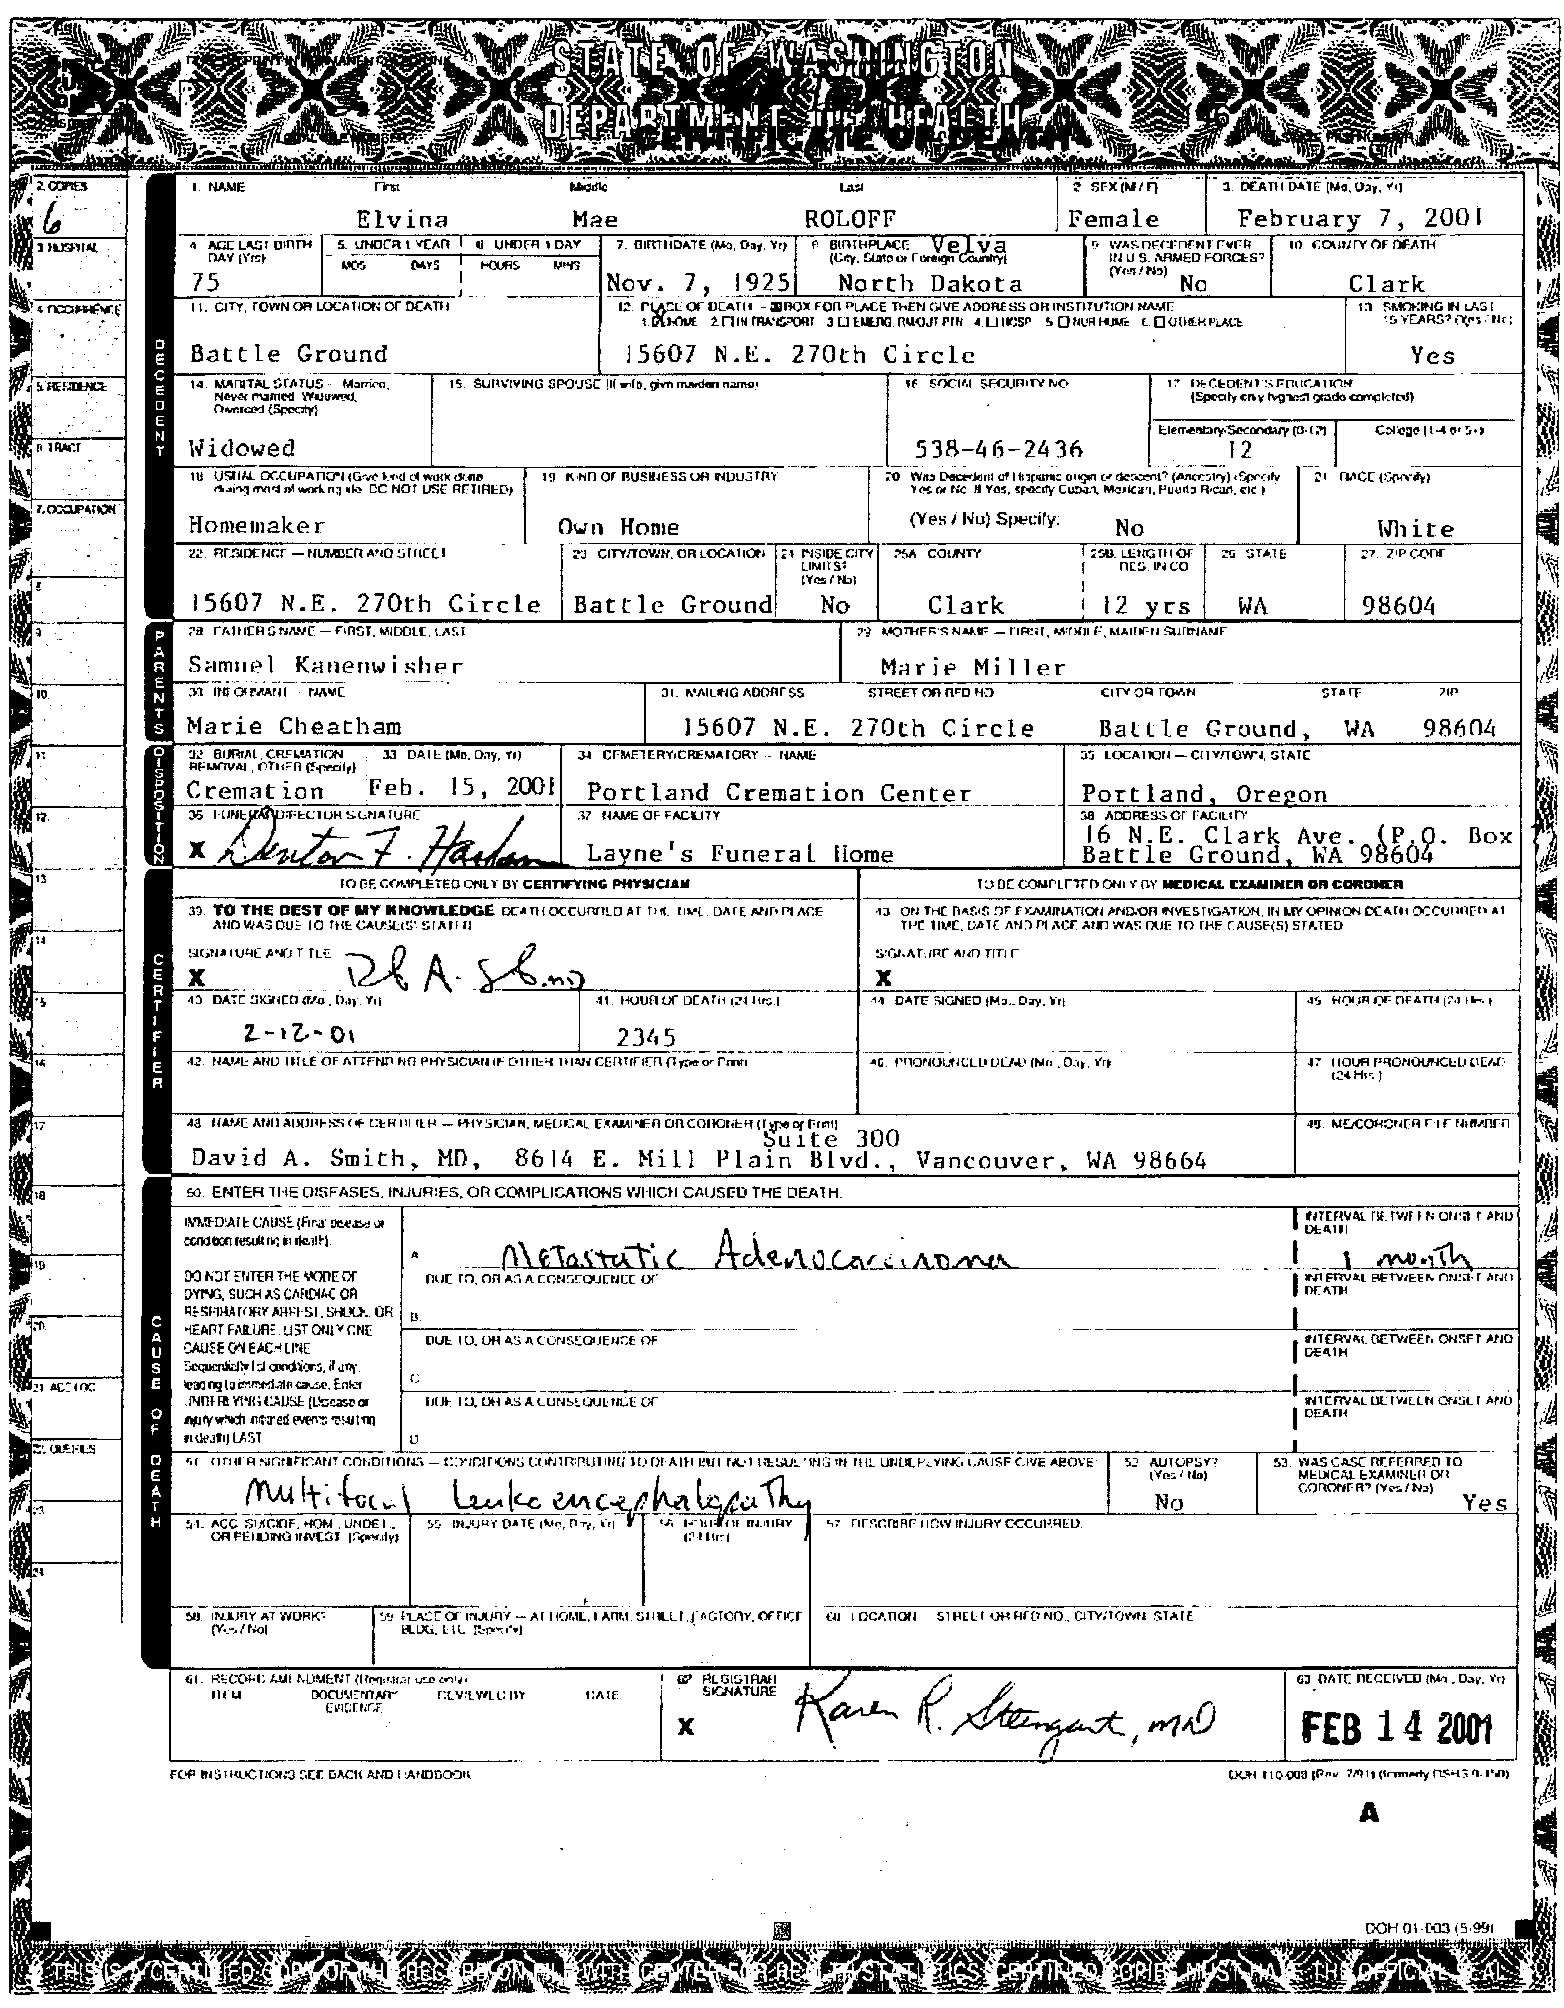 STATE OF WASHINGTON
DEPARTMENT OF HEALTH
CERTIFICATE OF DEATH
2. COPIES
6
1. NAME First Middle Last
Elvina Mae ROLOFF
2. SEX (M / F)
Female
3. DEATH DATE (Mo, Day, Yr)
February 7, 2001
3 HOSPITAL
4. AGE LAST BIRTH
DAY (Yrs)
75
5. UNDER 1 YEAR
MOS DAYS
6. UNDER 1 DAY
HOURS MINS
7. BIRTHDATE (Mo, Day, Yr)
Nov. 7, 1925
8. BIRTHPLACE Velva
(City, State or Foreign Country)
North Dakota
9. WAS DECEDENT EVER
IN U.S. ARMED FORCES?
(Yes / No)
No
10. COUNTY OF DEATH
Clark
4 OCCURRENCE
11. CITY, TOWN OR LOCATION OF DEATH
Battle Ground
12. PLACE OF DEATH — BOX FOR PLACE THEN GIVE ADDRESS OR INSTITUTION NAME
1. HOME 2. IN TRANSPORT 3 EMERG. RM/OUT PTN 4. HOSP 5 NUR HOME 6. OTHER PLACE
15607 N.E. 270th Circle
13. SMOKING IN LAST
15 YEARS? (Yes / No)
Yes
DECEDENT
5. RESIDENCE
14. MARITAL STATUS - Married,
Never married, Widowed,
Divorced (Specify)
Widowed
15. SURVIVING SPOUSE (If wife, give maiden name)
16. SOCIAL SECURITY NO
538-46-2436
17. DECEDENT'S EDUCATION
(Specify only highest grade completed)
Elementary/Secondary (0-12) College (1-4 or 5+)
12
6 TRACT
18. USUAL OCCUPATION (Give kind of work done
during most of working life. DO NOT USE RETIRED)
Homemaker
19. KIND OF BUSINESS OR INDUSTRY
Own Home
20. Was Decedent of Hispanic origin or descent? (Ancestry) (Specify
Yes or No. If Yes, specify Cuban, Mexican, Puerto Rican, etc.)
(Yes / No) Specify: No
21. RACE (Specify)
White
7. OCCUPATION
22. RESIDENCE — NUMBER AND STREET
15607 N.E. 270th Circle
23. CITY/TOWN, OR LOCATION
Battle Ground
24. INSIDE CITY
LIMITS?
(Yes / No)
No
25A. COUNTY
Clark
25B. LENGTH OF
RES. IN CO
12 yrs
26. STATE
WA
27. ZIP CODE
98604
8
9
PARENTS
28. FATHER'S NAME — FIRST, MIDDLE, LAST
Samuel Kanenwisher
29. MOTHER'S NAME — FIRST, MIDDLE, MAIDEN SURNAME
Marie Miller
10.
30. INFORMANT - NAME
Marie Cheatham
31. MAILING ADDRESS STREET OR RFD NO CITY OR TOWN STATE ZIP
15607 N.E. 270th Circle Battle Ground, WA 98604
11
DISPOSITION
32. BURIAL, CREMATION
REMOVAL, OTHER (Specify)
Cremation
33. DATE (Mo, Day, Yr)
Feb. 15, 2001
34. CEMETERY/CREMATORY - NAME
Portland Cremation Center
35. LOCATION — CITY/TOWN, STATE
Portland, Oregon
12.
36. FUNERAL DIRECTOR SIGNATURE
X
37. NAME OF FACILITY
Layne's Funeral Home
38. ADDRESS OF FACILITY
16 N.E. Clark Ave. (P.O. Box
Battle Ground, WA 98604
13
TO BE COMPLETED ONLY BY CERTIFYING PHYSICIAN
TO BE COMPLETED ONLY BY MEDICAL EXAMINER OR CORONER
39. TO THE BEST OF MY KNOWLEDGE DEATH OCCURRED AT THE TIME, DATE AND PLACE
AND WAS DUE TO THE CAUSE(S) STATED
SIGNATURE AND TITLE
X
43. ON THE BASIS OF EXAMINATION AND/OR INVESTIGATION, IN MY OPINION DEATH OCCURRED AT
THE TIME, DATE AND PLACE AND WAS DUE TO THE CAUSE(S) STATED
SIGNATURE AND TITLE
X
14
CERTIFIER
15
40. DATE SIGNED (Mo., Day, Yr)
2-12-01
41. HOUR OF DEATH (24 Hrs.)
2345
44. DATE SIGNED (Mo., Day, Yr)
45. HOUR OF DEATH (24 Hrs.)
16
42. NAME AND TITLE OF ATTENDING PHYSICIAN IF OTHER THAN CERTIFIER (Type or Print)
46. PRONOUNCED DEAD (Mo., Day, Yr)
47. HOUR PRONOUNCED DEAD
(24 Hrs.)
17
48. NAME AND ADDRESS OF CERTIFIER — PHYSICIAN, MEDICAL EXAMINER OR CORONER (Type or Print)
Suite 300
David A. Smith, MD, 8614 E. Mill Plain Blvd., Vancouver, WA 98664
49. ME/CORONER FILE NUMBER
18
50. ENTER THE DISEASES, INJURIES, OR COMPLICATIONS WHICH CAUSED THE DEATH.
IMMEDIATE CAUSE (Final disease or
condition resulting in death).
DO NOT ENTER THE MODE OF
DYING, SUCH AS CARDIAC OR
RESPIRATORY ARREST, SHOCK, OR
HEART FAILURE. LIST ONLY ONE
CAUSE ON EACH LINE
Sequentially list conditions, if any,
leading to immediate cause. Enter
UNDERLYING CAUSE (Disease or
injury which initiated events resulting
in death) LAST
A Metastatic Adenocarcinoma
INTERVAL BETWEEN ONSET AND
DEATH
1 month
DUE TO, OR AS A CONSEQUENCE OF
B.
INTERVAL BETWEEN ONSET AND
DEATH
DUE TO, OR AS A CONSEQUENCE OF
C
INTERVAL BETWEEN ONSET AND
DEATH
DUE TO, OR AS A CONSEQUENCE OF
D
INTERVAL BETWEEN ONSET AND
DEATH
19
20.
21 ACC LOC
CAUSE OF DEATH
51. OTHER SIGNIFICANT CONDITIONS — CONDITIONS CONTRIBUTING TO DEATH BUT NOT RESULTING IN THE UNDERLYING CAUSE GIVE ABOVE
Multifocal Leukoencephalopathy
52. AUTOPSY?
(Yes / No)
No
53. WAS CASE REFERRED TO
MEDICAL EXAMINER OR
CORONER? (Yes / No)
Yes
23
54. ACC. SUICIDE, HOM., UNDET.,
OR PENDING INVEST. (Specify)
55. INJURY DATE (Mo, Day, Yr)
56. HOUR OF INJURY
(24 Hrs)
57. DESCRIBE HOW INJURY OCCURRED.
24
58. INJURY AT WORK?
(Yes / No)
59. PLACE OF INJURY — AT HOME, FARM, STREET, FACTORY, OFFICE
BLDG, ETC. (Specify)
60 LOCATION STREET OR RFD NO., CITY/TOWN, STATE
61. RECORD AMENDMENT (Registrar use only)
ITEM DOCUMENTARY EVIDENCE REVIEWED BY DATE
62. REGISTRAR
SIGNATURE
X Karen R. Steingart, MD
63. DATE RECEIVED (Mo., Day, Yr)
FEB 14 2001
FOR INSTRUCTIONS SEE BACK AND HANDBOOK
DOH 110-008 (Rev. 7/91) (formerly DSHS 9-150)
A
DOH 01-003 (5-99)